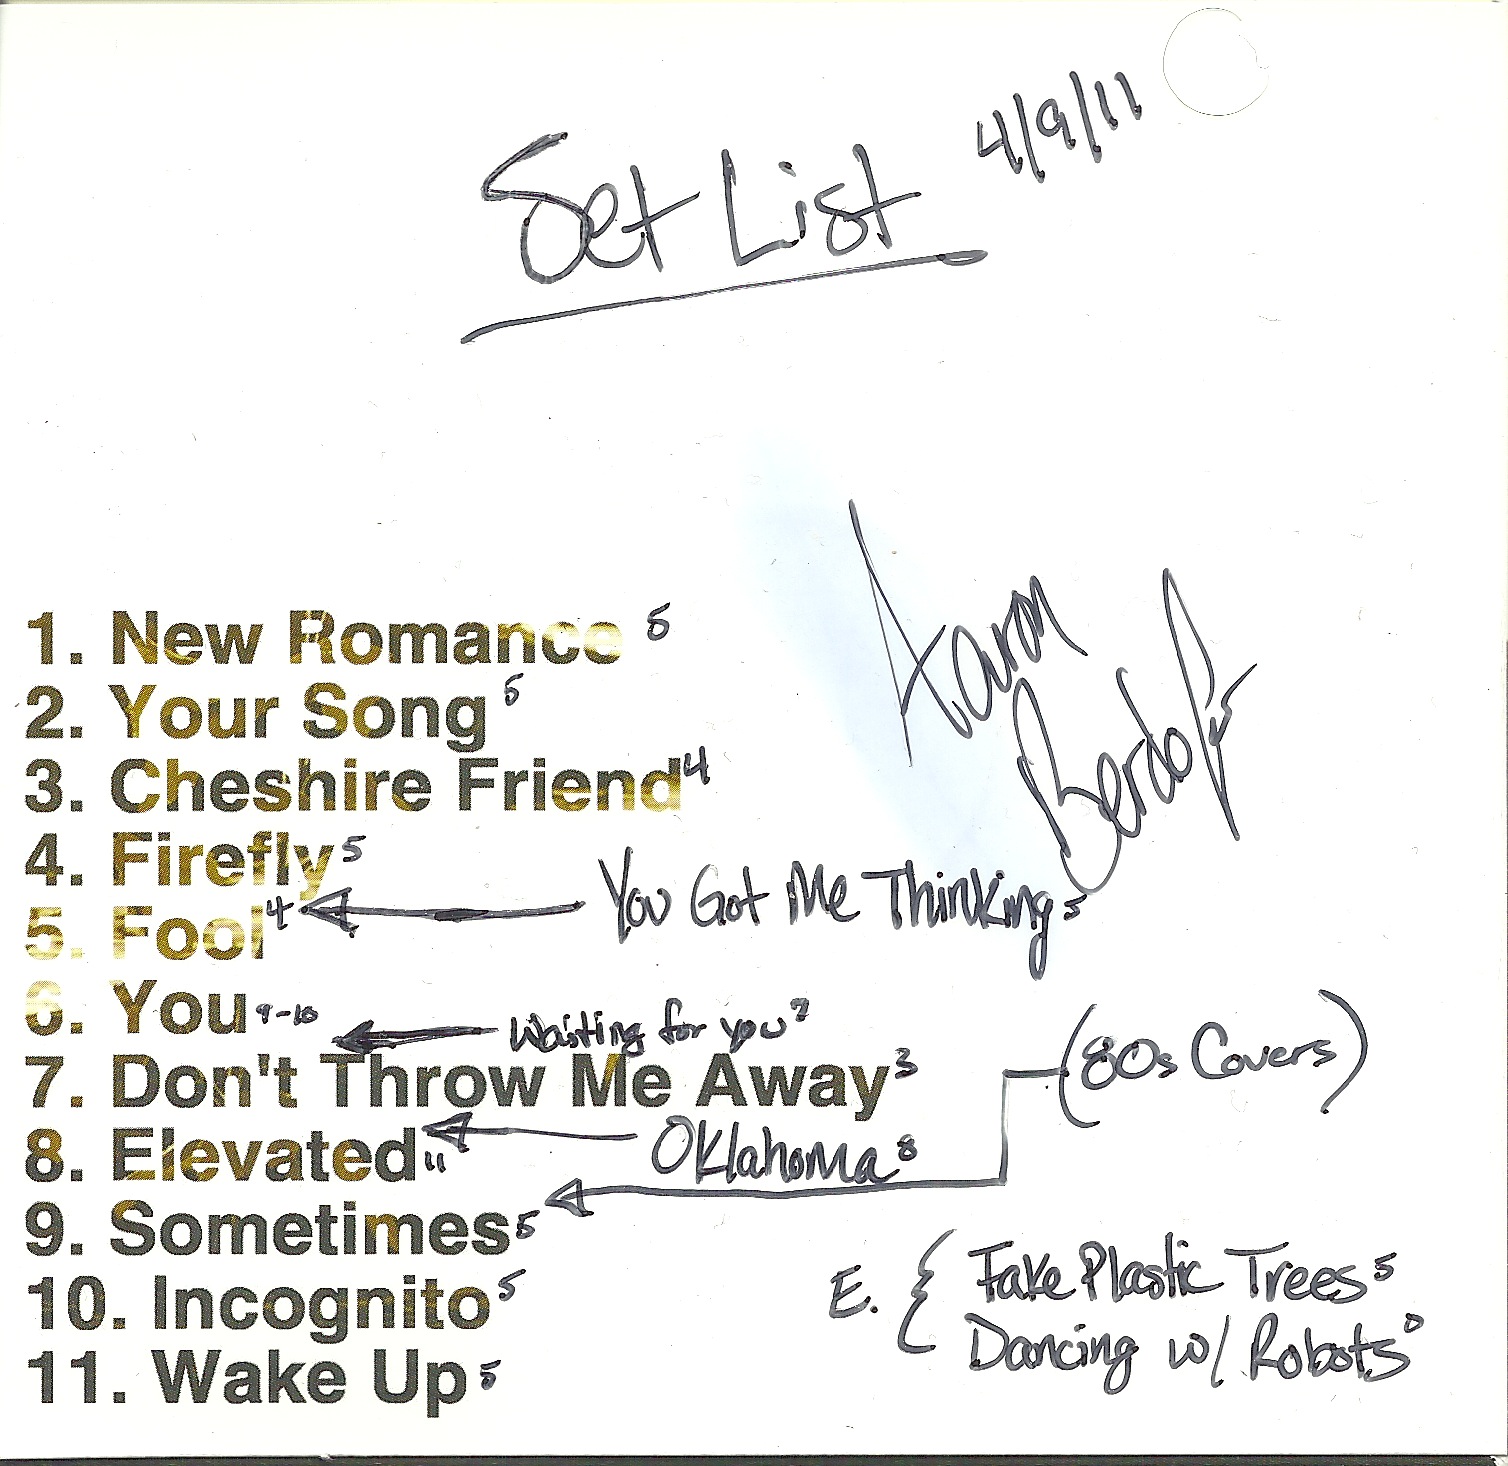 Set List 4/9/11
Aaron
Berdofe
1. New Romance 5
2. Your Song 5
3. Cheshire Friend 4
4. Firefly 5
You Got Me Thinking 5
5. Fool 4
6. You 9-10
Waiting for you 7
(80s Covers)
7. Don't Throw Me Away 3
Oklahoma 8
8. Elevated 11
9. Sometimes 5
E. { Fake Plastic Trees 5
10. Incognito 5
Dancing w/ Robots 0
11. Wake Up 5